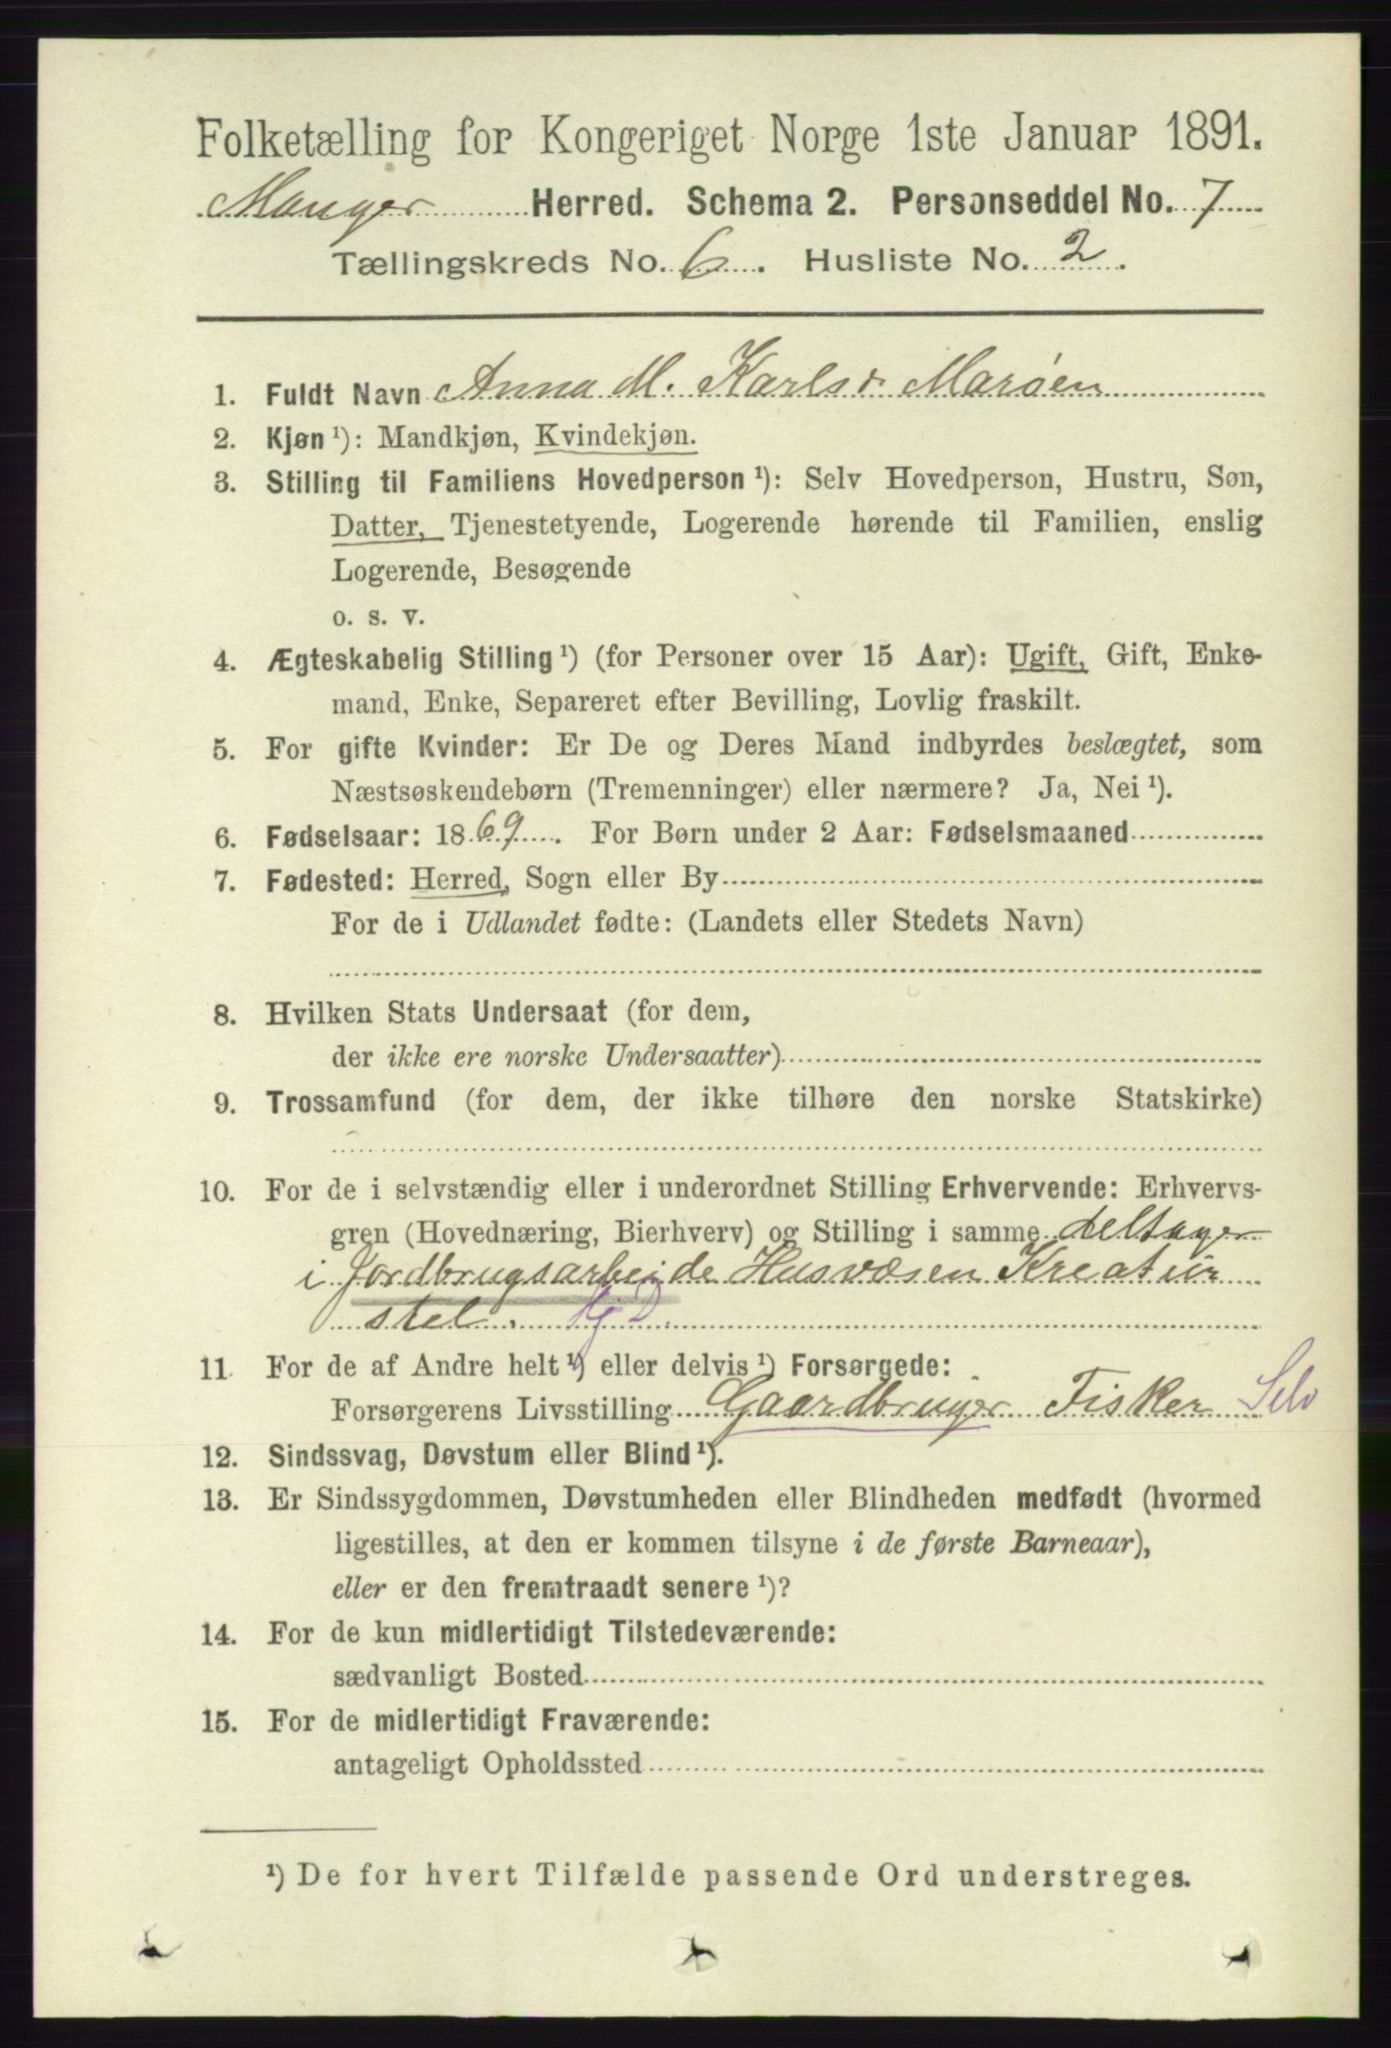 Folketælling for Kongeriget Norge 1ste Januar 1891.
Manger Herred. Schema 2. Personseddel No. 7
Tællingskreds No. 6. Husliste No. 2.
1. Fuldt Navn Anna M. Karlsd. Marøen
2. Kjøn ¹): Mandkjøn, Kvindekjøn.
3. Stilling til Familiens Hovedperson ¹): Selv Hovedperson, Hustru, Søn,
Datter, Tjenestetyende, Logerende hørende til Familien, enslig
Logerende, Besøgende
o. s. v.
4. Ægteskabelig Stilling ¹) (for Personer over 15 Aar): Ugift, Gift, Enke-
mand, Enke, Separeret efter Bevilling, Lovlig fraskilt.
5. For gifte Kvinder: Er De og Deres Mand indbyrdes beslægtet, som
Næstsøskendebørn (Tremenninger) eller nærmere? Ja, Nei ¹).
6. Fødselsaar: 1869. For Børn under 2 Aar: Fødselsmaaned
7. Fødested: Herred, Sogn eller By
For de i Udlandet fødte: (Landets eller Stedets Navn)
8. Hvilken Stats Undersaat (for dem,
der ikke ere norske Undersaatter)
9. Trossamfund (for dem, der ikke tilhøre den norske Statskirke)
10. For de i selvstændig eller i underordnet Stilling Erhvervende: Erhvervs-
gren (Hovednæring, Bierhverv) og Stilling i samme deltager
i Jordbrugsarbeide Husvæsen Kreatur
stel. Hj D.
11. For de af Andre helt ¹) eller delvis ¹) Forsørgede:
Forsørgerens Livsstilling Gaardbruger Fisker Selv
12. Sindssvag, Døvstum eller Blind ¹).
13. Er Sindssygdommen, Døvstumheden eller Blindheden medfødt (hvormed
ligestilles, at den er kommen tilsyne i de første Barneaar),
eller er den fremtraadt senere ¹)?
14. For de kun midlertidigt Tilstedeværende:
sædvanligt Bosted
15. For de midlertidigt Fraværende:
antageligt Opholdssted
¹) De for hvert Tilfælde passende Ord understreges.